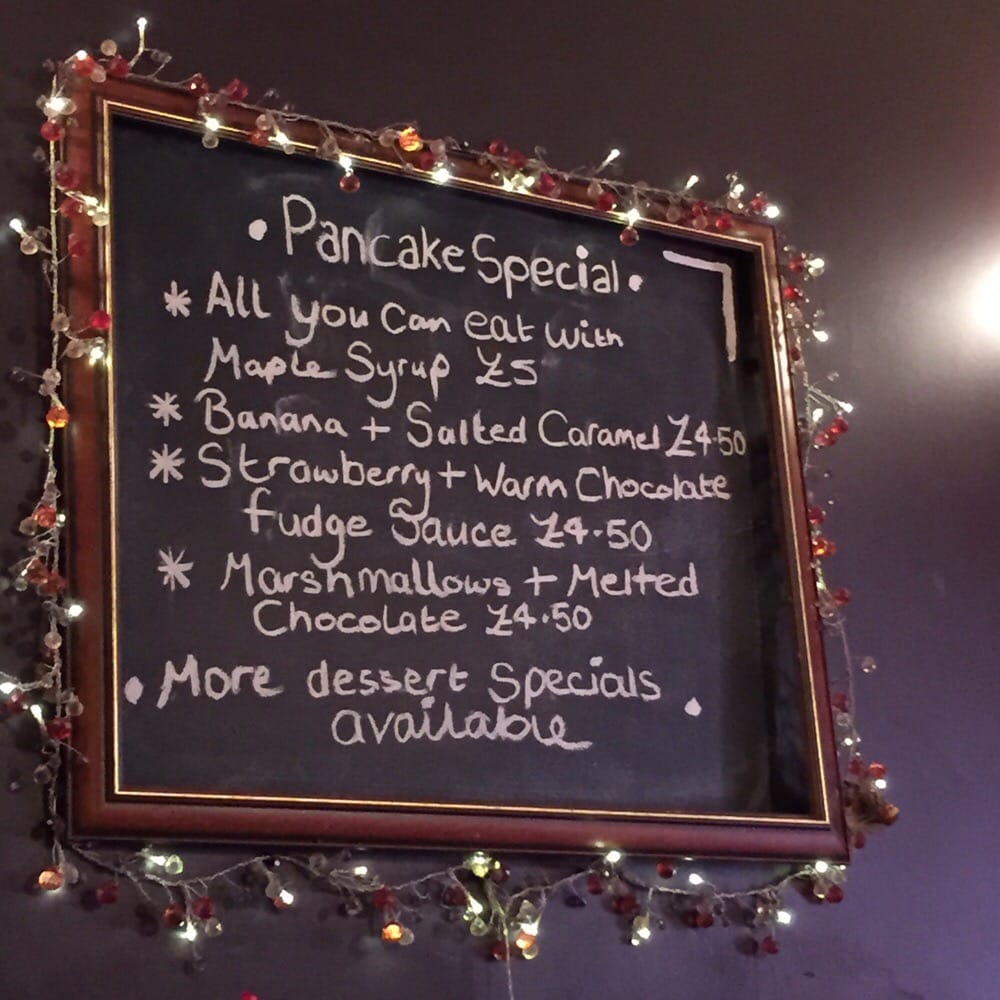 • Pancake Special •
* All you can eat with
Maple Syrup £5
* Banana + Salted Caramel £4.50
* Strawberry + Warm Chocolate
fudge Sauce £4.50
* Marshmallows + Melted
Chocolate £4.50
• More dessert Specials •
available